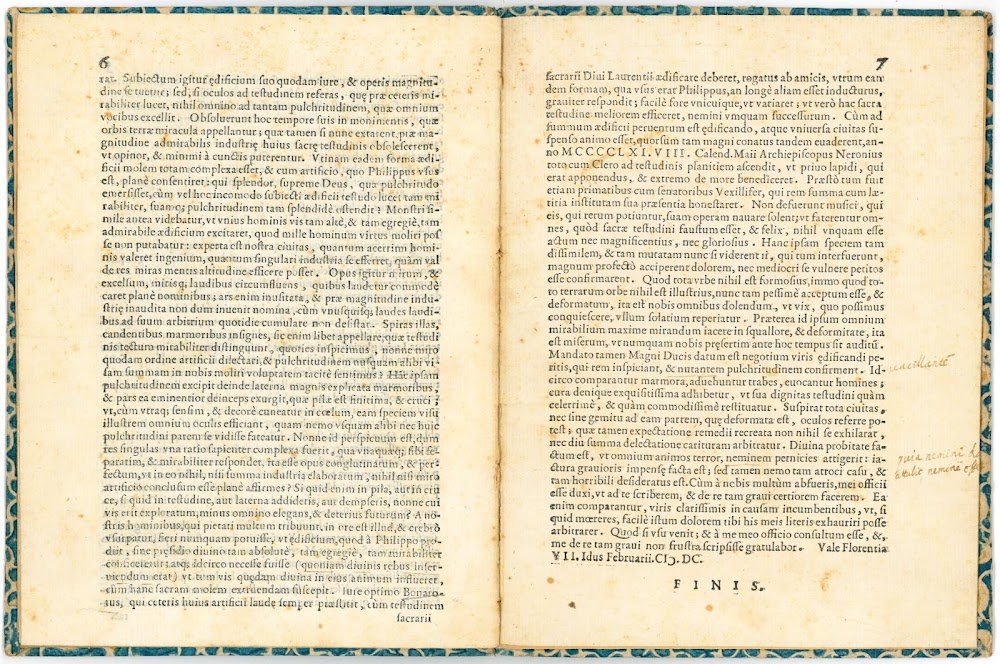 6
rat. Subiectum igitur ędificium suo quodam iure, & operis magnitu-
dine se tuetur; sed, si oculos ad testudinem referas, quę præ ceteris mi-
rabiliter lucet, nihil omnino ad tantam pulchritudinem, quæ omnium
voces excellit. Obsoluerunt hoc tempore suis in monimentis, quæ
orbis terræ miracula appellantur; quæ tamen si nunc extarent, præ ma-
gnitudine admirabilis industrię huius sacrę testudinis obsolescerent,
vt opinor, & minimi à cunctis puterentur. Vtinam eadem forma ædi-
ficii molem totam complexa esset, & cum artificio, quo Philippus vsus
est, planè consentiret: qui splendor, supreme Deus, qua pulchritudo
emersisset, cùm vel hoc incomodo subiecti ædificii testudo lucet tam mi
rabiliter, suamq; pulchritudinem tam splendidè ostendit? Monstri si-
mile antea videbatur, vt vnius hominis vis tam altè, & tam egregiè, tam
admirabile ædificium excitaret, quod mille hominum virtus moliri pos
se non putabatur: experta est nostra ciuitas, quantum acerrim homi-
nis valeret ingenium, quantum singulari industria se efferret, quàm val
de res miras mentis altitudine efficere posset. Opus igitur mirum, &
excelsum, mirisq; laudibus circumfluens, quibus laudetur commodè
caret planè nominibus; ars enim inusitata, & præ magnitudine indu-
strię inaudita non dum inuenit nomina, cùm vnusquisq; laudes laudi-
bus ad suum arbitrium quotidie cumulare non desistat. Spiras illas,
candentibus marmoribus insignes, sic enim libet appellare, quæ testudi
nis tectura mirabiliter distinguunt, quoties inspicimus, nonne miro
quodam ordine artificii dilectari, & pulchritudinem nusquam alibi vi
sam summam in nobis moliri voluptatem tacitè sentimus? Hāc ipsam
pulchritudinem excipit deinde laterna magnis explicata marmoribus,
& pars ea eminentior deinceps exurgit, quæ pilæ est finitima, & cruci;
vt, cùm vtraq; sensim, & decorè cuneatur in cœlum, eam speciem visu
illustrem omnium oculis efficiant, quam nemo vsquam alibi nec huic
pulchritudini parem se vidisse fateatur. Nonne id perspicuum est, dum
res singulas vna ratio sapienter complexa fuerit, qua vnaquæq; sibi se-
paratim, & mirabiliter respondet, ita esse opus conglutinatum, & per-
fectum, vt in eo nihil, nisi summa industria elaboratum, nihil nisi miro
artificio conclusum esse planè affirmes? Si quid enim in pila, aut in cru
ce, si quid in testudine, aut laterna addideris, aut dempseris, nonne cui
vis erit exploratum, minus omnino elegans, & deterius futurum? A no-
stris hominibus, qui pietati multum tribuunt, in ore est illud, & crebrò
vsurpatur, fieri numquam potuisse, vt ędificium, quod à Philippo pro-
diit, sine pręsidio diuino tam absolutè, tam egregiè, tam mirabiliter
conficeretur; atq; idcirco necesse fuisse (quoniam diuinis rebus inser-
uiendum erat) vt tum vis quędam diuina in eius animum influeret,
cùm hanc sacram molem extruendam suscepit. Iure optimo Bonaro-
tus, qui ceteris huius artificii laudę semper præstitit, cùm testudinem
sacrarii
7
sacrarii Diui Laurentii ædificare deberet, rogatus ab amicis, vtrum ean
dem formam, qua vsus erat Philippus, an longè aliam esset inducturus,
grauiter respondit; facilè fore vnicuique, vt variaret; vt verò hac sacra
testudine meliorem efficeret, nemini vmquam successurum. Cùm ad
summum ædificii peruentum est ędificando, atque vniuersa ciuitas su-
spenso animo esset, quorsum tam magni conatus tandem euaderent, an-
no MCCCCLXI. VIII. Calend. Maii Archiepiscopus Neronius
tota cum Clero ad testudinis planitiem ascendit, vt priuo lapidi, qui
erat apponendus, & extremo de more benediceret. Præstò tum fuit
etiam primatibus cum senatoribus Vexillifer, qui rem summa cum læ-
titia institutam sua præsentia honestaret. Non defuerunt musici, qui
eis, qui rerum potiuntur, suam operam nauare solent; vt faterentur om-
nes, quòd sacræ testudini faustum esset, & felix, nihil vnquam esse
actum nec magnificentius, nec gloriosius. Hanc ipsam speciem tam
dissimilem, & tam mutatam nunc si viderent ii, qui tum interfuerunt,
magnum profectò acciperent dolorem, nec mediocri se vulnere petitos
esse confirmarent. Quod tota vrbe nihil est formosius, immo quod to-
to terrarum orbe nihil est illustrius, nunc tam pessimè acceptum esse, &
deformatum, ita est nobis omnibus dolendum, vt vix, quo possimus
conquiescere, vllum solatium reperiatur. Præterea id ipsum omnium
mirabilium maxime mirandum iacere in squallore, & deformitate, ita
est miserum, vt numquam nobis pręsertim ante hoc tempus sit auditū.
Mandato tamen Magni Ducis datum est negotium viris ędificandi pe-
ritis, qui rem inspiciant, & nutantem pulchritudinem confirment. Id-
circo comparantur marmora, aduehuntur trabes, euocantur homines;
cura denique exquisitissima adhibetur, vt sua dignitas testudini quàm
celerrimè, & quàm commodissimè restituatur. Suspirat tota ciuitas,
nec sine gemitu ad eam partem, quę deformata est, oculos referre po-
test; quæ tamen expectatione remedii recreata non nihil se exhilarat,
nec diu summa delectatione carituram arbitratur. Diuina probitate fa-
ctum est, vt omnium animos terror, neminem pernicies attigerit: ia-
ctura grauioris impensę facta est; sed tamen nemo tam atroci casu, &
tam horribili desideratus est. Cùm à nobis multùm abfueris, mei officii
esse duxi, vt ad te scriberem, & de re tam graui certiorem facerem. Ea
enim comparantur, viris clarissimis in causam incumbentibus, vt, si
quid mœreres, facilè istum dolorem tibi his meis literis exhauriri posse
arbitrarer. Quod si vsu venit; & à me meo officio consultum esse, &
me de re tam graui non frustra scripsisse gratulabor. Vale Florentiæ
VII. Idus Februarii. CIↃ. DC.
FINIS.
vacillantē
quia nemini
nemine